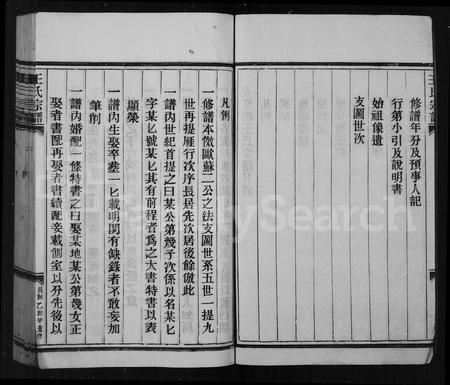 王氏宗譜
修譜年分及預事人記
行第小引及說明書
始祖像遺
支圖世次
凡例
一修譜本倣歐蘇二公之法支圖世系五世一提九
世再提雁行次序長居先次居後餘倣此
一譜內世紀首提之曰某公第幾子次係以名某匕
字某匕號某匕其有前程者為之大書特書以表
顯榮
一譜內生娶卒塟一匕載明閒有缺錄者不敢妄加
筆削
一譜內婚配一條特書之曰娶某地某公第幾女正
娶者書配再娶者書續配妾載側室以介先後以
王氏宗譜
FamilySearch